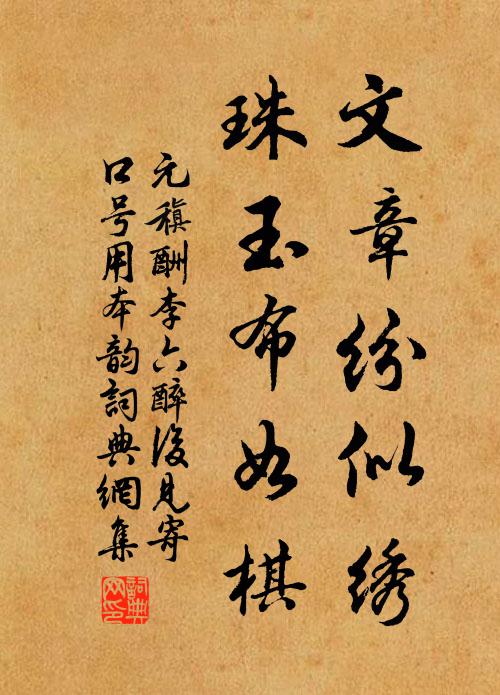 文章纷似绣
珠玉布如棋
元稹酬李六醉後见寄
口号用本韵詞典網集
詞典网印